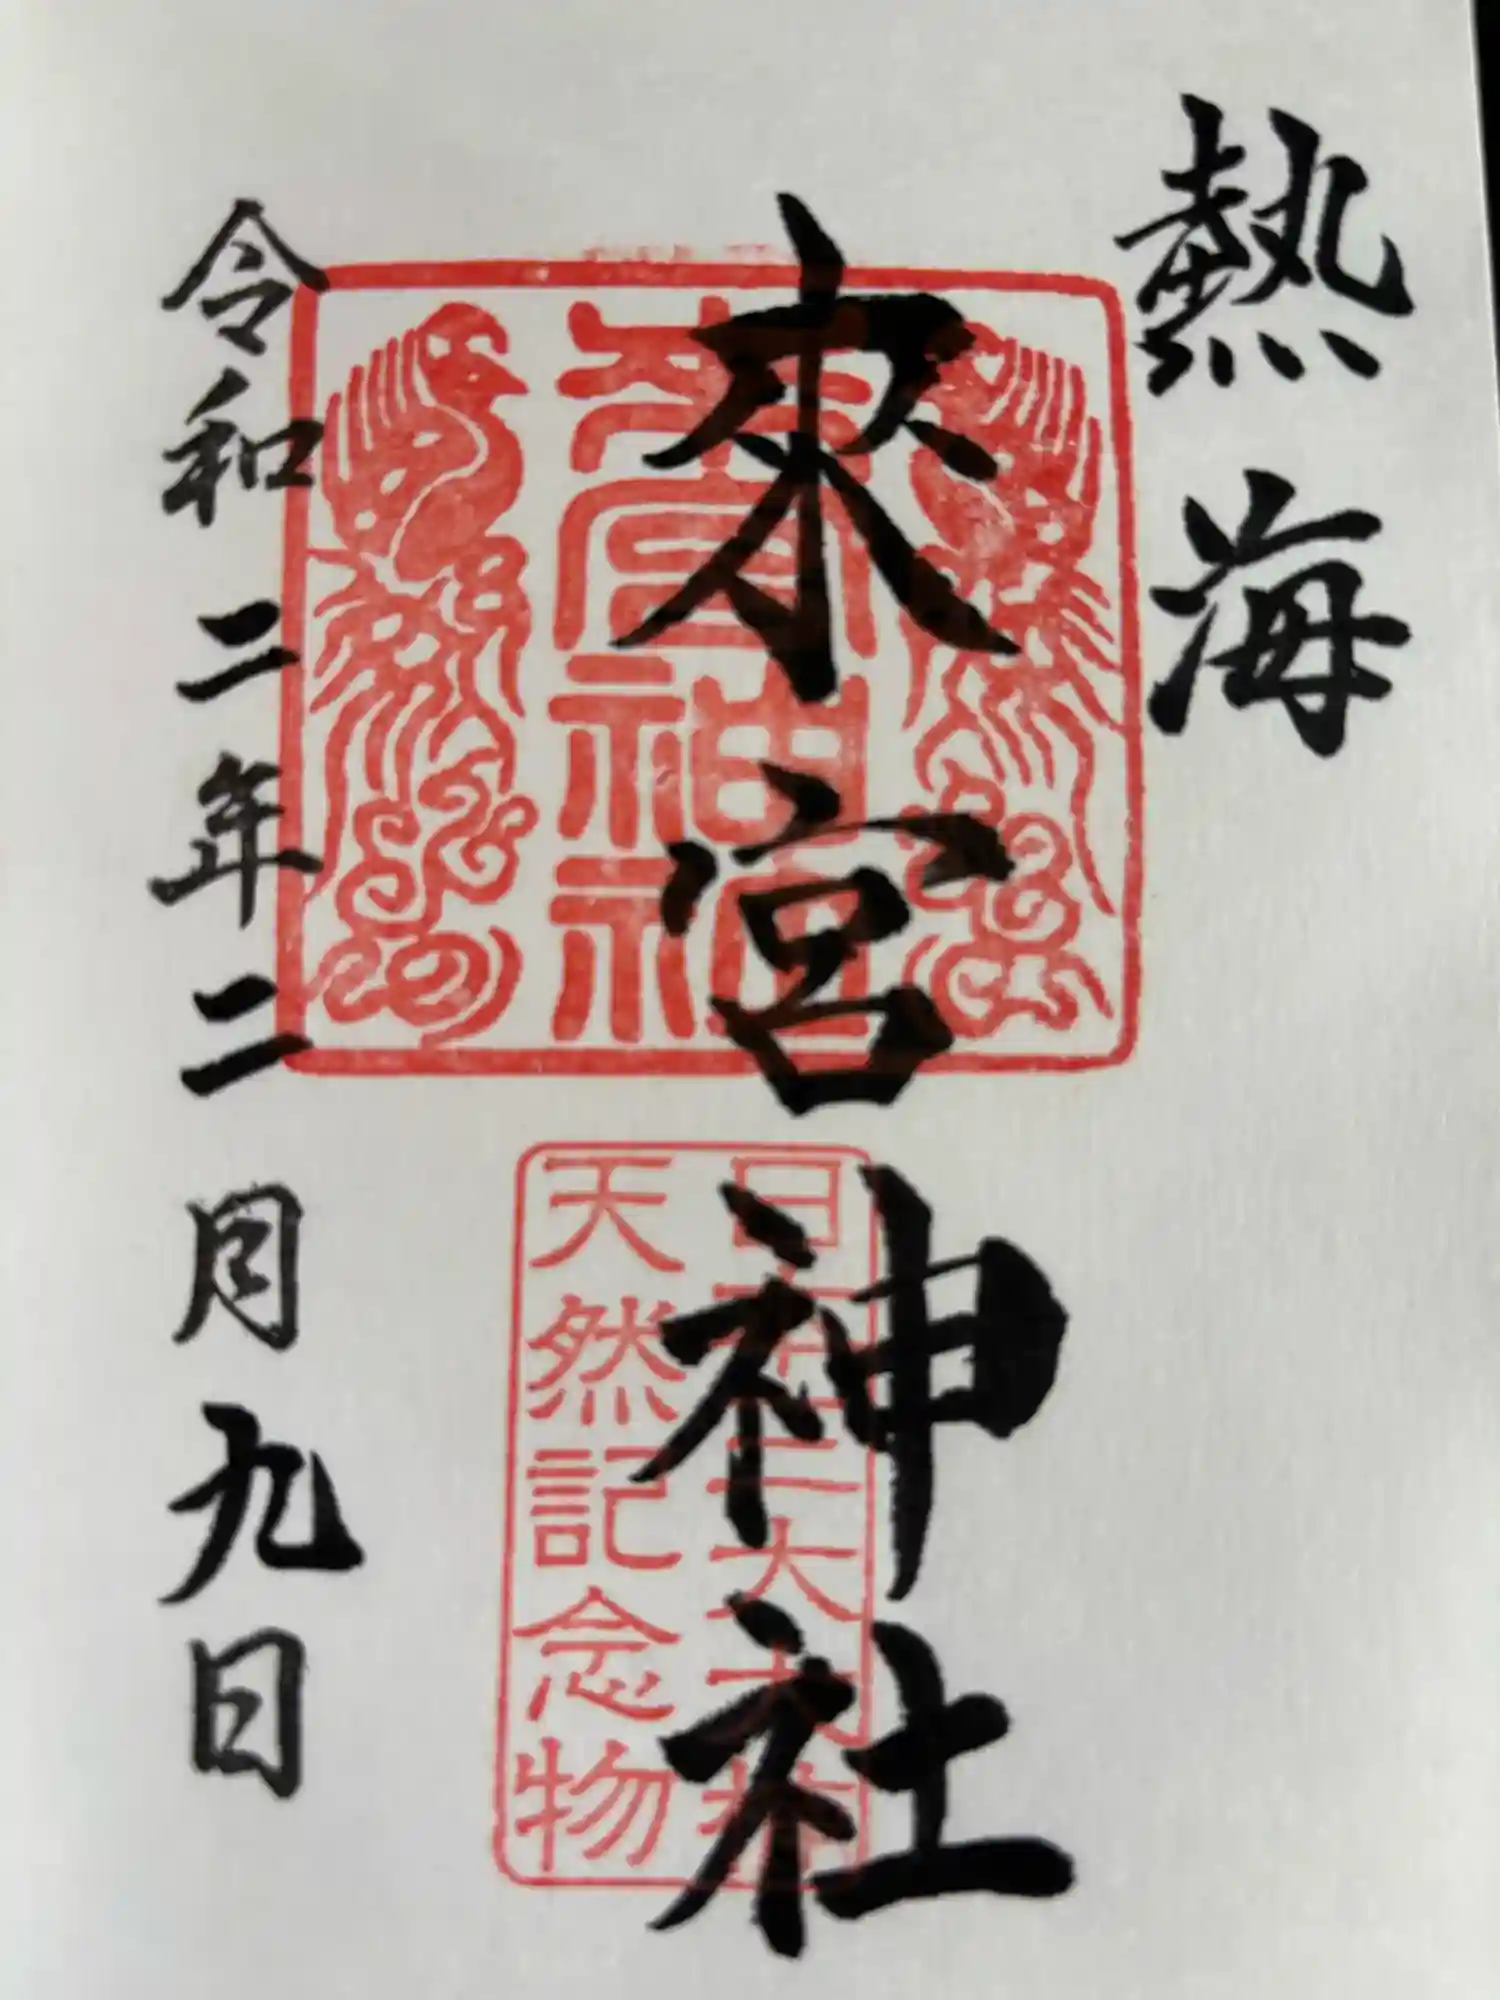 熱海
來宮神社
來宮神社
日本三大大楠
天然記念物
令和二年二月九日